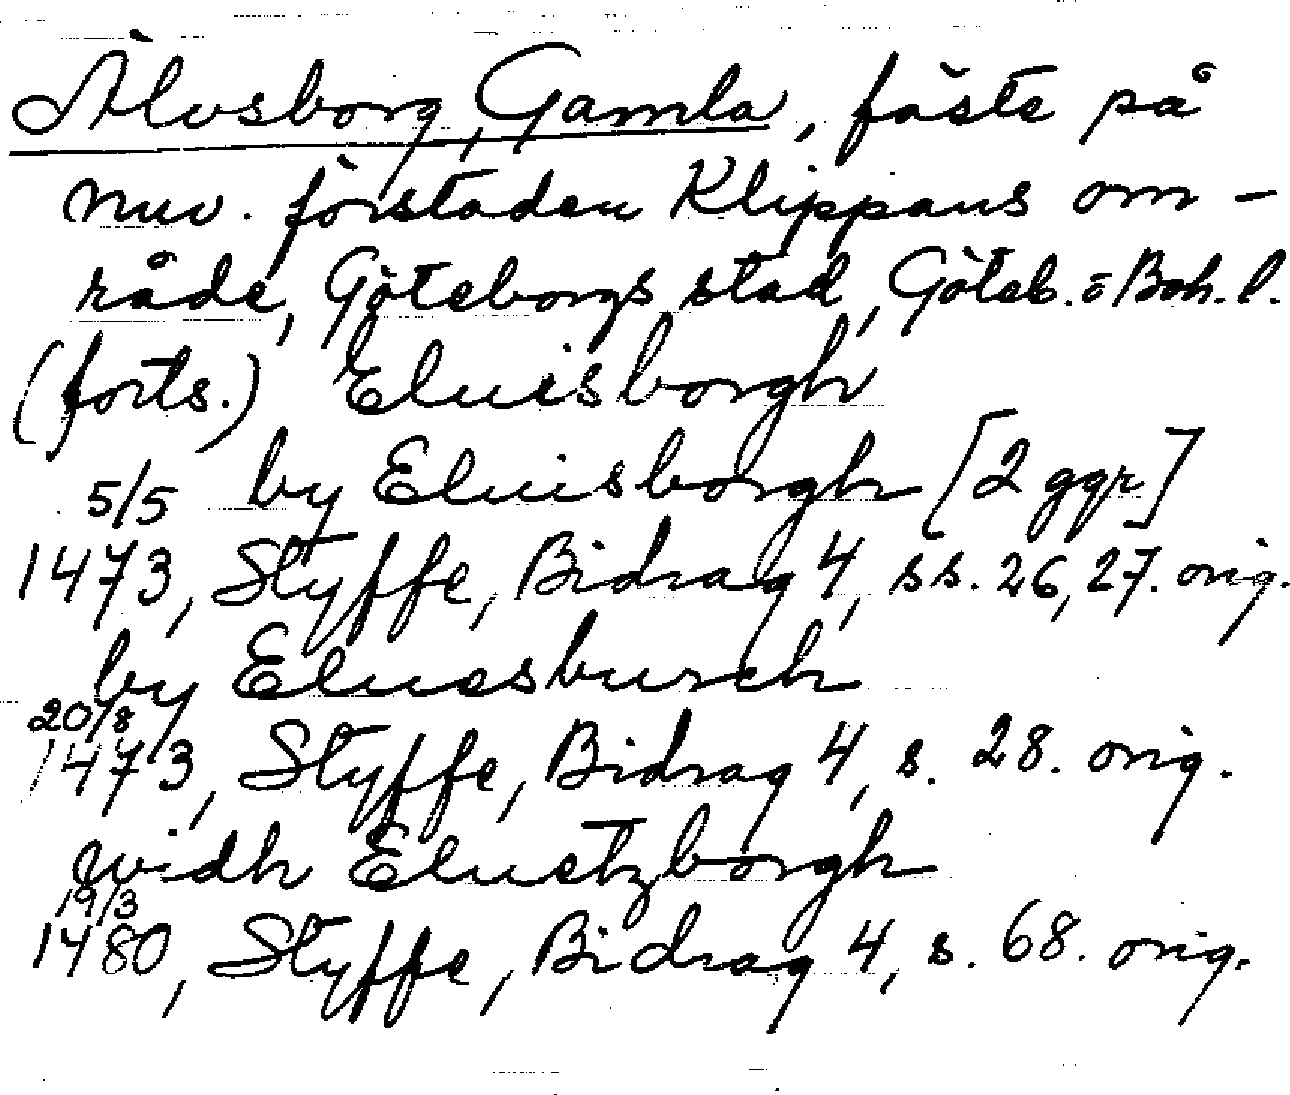 Älvsborg, Gamla, fäste på
nuv. förstaden Klippans om-
råde, Göteborgs stad, Göteb. o Boh. l.
(forts.) Eluisborgh
5/5 by Eluisborgh [2 ggr]
1473, Styffe, Bidrag 4, ss. 26, 27. orig.
by Eluesburch
20/8
1473, Styffe, Bidrag 4, s. 28. orig.
widh Eluetzborgh
19/3
1480, Styffe, Bidrag 4, s. 68. orig.